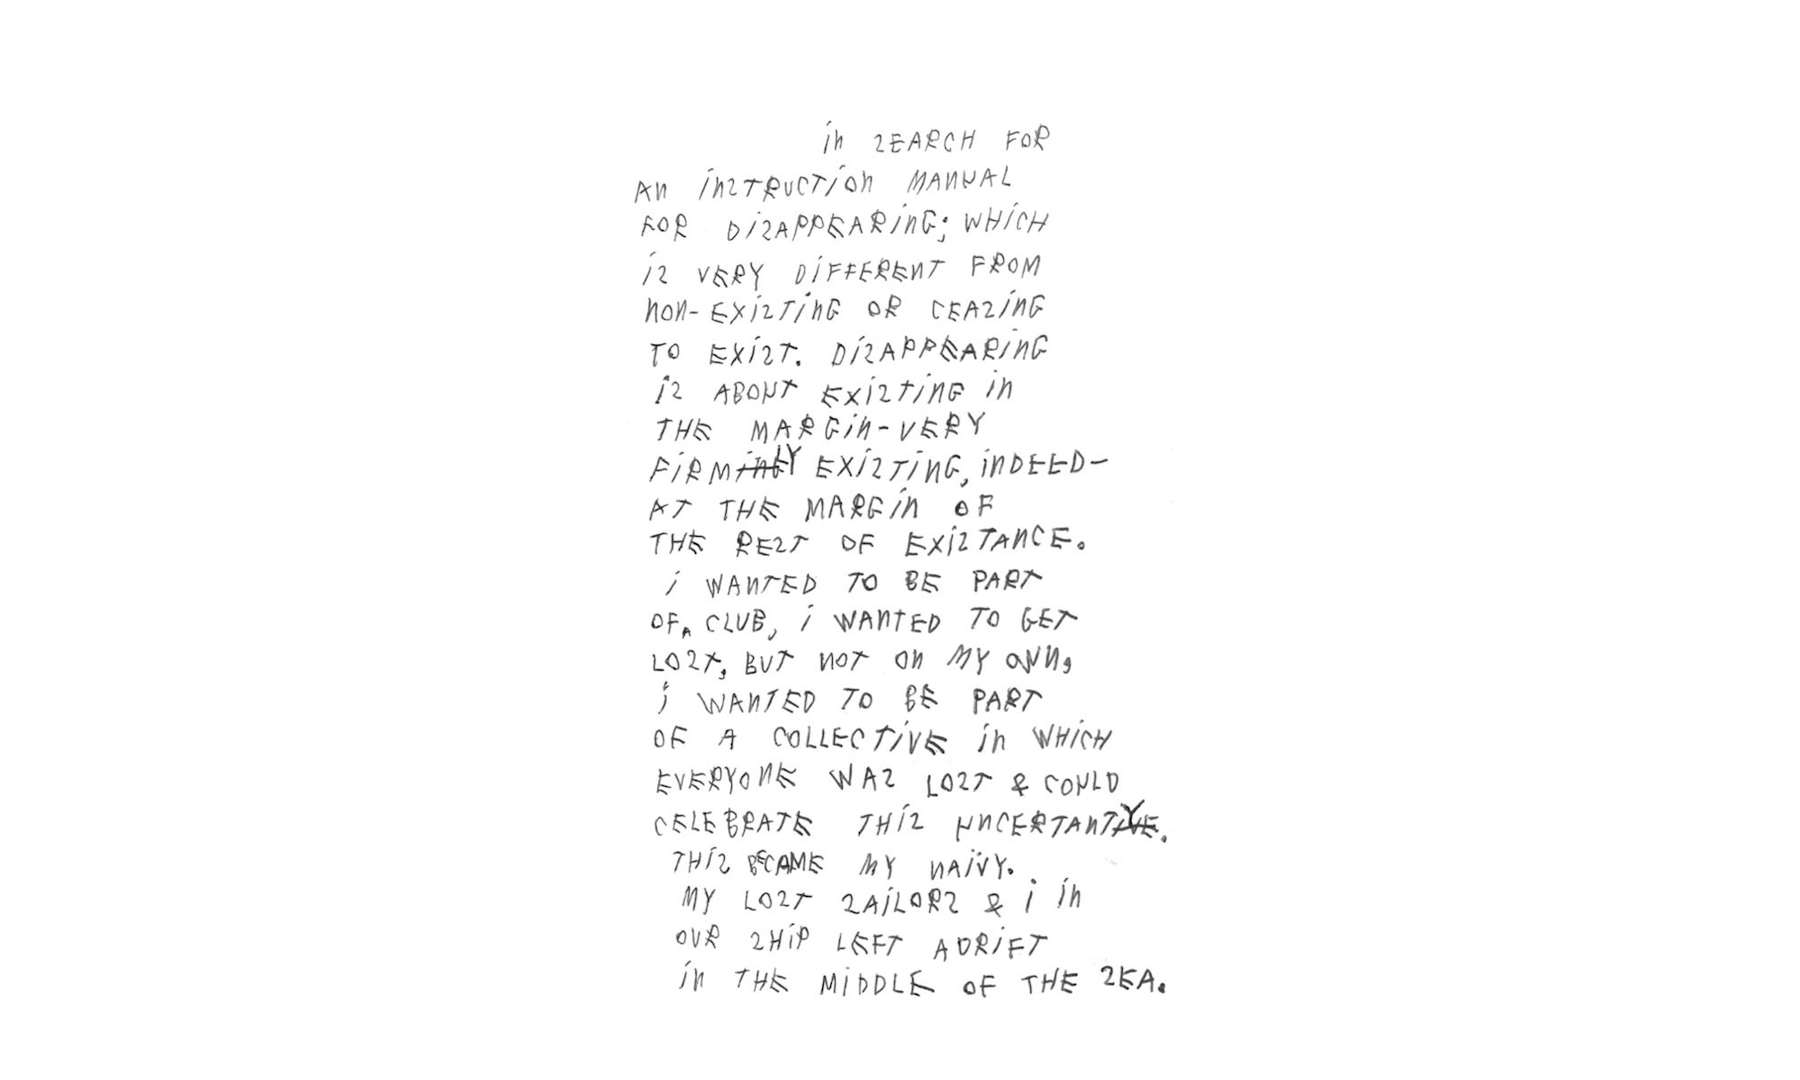 in SEARCH FOR
AN iNSTRUCTiON MANUAL
FOR DiSAPPEARiNG; WHiCH
iS VERY DiFFERENT FROM
NON-EXiSTiNG OR CEASiNG
TO EXiST. DiSAPPEARiNG
iS ABOUT EXiSTiNG iN
THE MARGiN-VERY
FiRMLY EXiSTiNG, iNDEED-
AT THE MARGiN OF
THE REST OF EXiSTANCE.
i WANTED TO BE PART
OF A CLUB, i WANTED TO GET
LOST, BUT NOT ON MY OWN,
i WANTED TO BE PART
OF A COLLECTiVE iN WHiCH
EVERYONE WAS LOST & COULD
CELEBRATE THiS UNCERTANTY.
THiS BECAME MY NAiVY.
MY LOST SAiLORS & i iN
OUR SHiP LEFT ADRiFT
iN THE MiDDLE OF THE SEA.